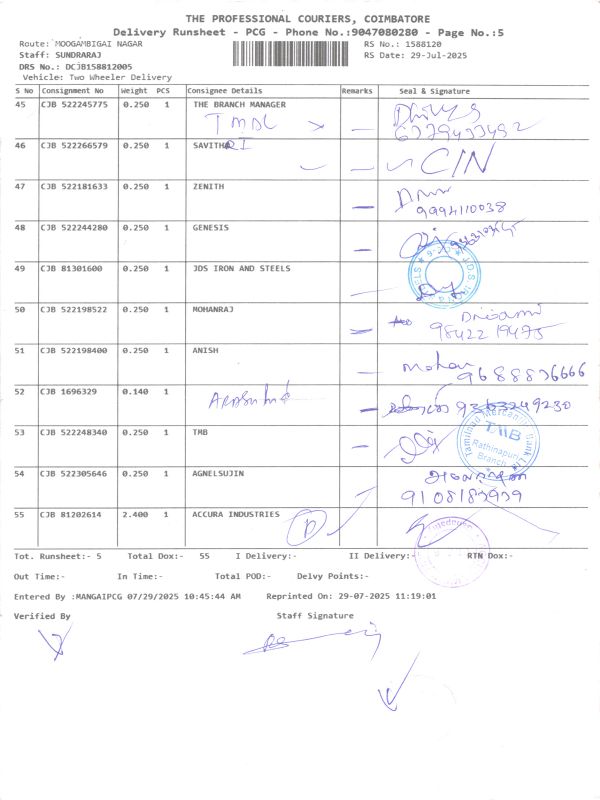 THE PROFESSIONAL COURIERS, COIMBATORE
Delivery Runsheet - PCG - Phone No.:9047080280 - Page No.:5
Route: MOOGAMBIGAI NAGAR RS No.: 1588120
Staff: SUNDRARAJ RS Date: 29-Jul-2025
DRS No.: DCJB158812005
Vehicle: Two Wheeler Delivery
S No Consignment No Weight PCS Consignee Details Remarks Seal & Signature
45 CJB 522245775 0.250 1 THE BRANCH MANAGER
46 CJB 522266579 0.250 1 SAVITHRI C/N
47 CJB 522181633 0.250 1 ZENITH
9994110038
48 CJB 522244280 0.250 1 GENESIS
49 CJB 81301600 0.250 1 JDS IRON AND STEELS
50 CJB 522198522 0.250 1 MOHANRAJ
9842219475
51 CJB 522198400 0.250 1 ANISH
Mohan
52 CJB 1696329 0.140 1
53 CJB 522248340 0.250 1 TMB
Tamilnad Mercantile Bank Ltd
TMB
Rathinapuri
Branch
54 CJB 522305646 0.250 1 AGNELSUJIN
55 CJB 81202614 2.400 1 ACCURA INDUSTRIES D
Tot. Runsheet:- 5 Total Dox:- 55 I Delivery:- II Delivery:- RTN Dox:-
Out Time:- In Time:- Total POD:- Delvy Points:-
Entered By :MANGAIPCG 07/29/2025 10:45:44 AM Reprinted On: 29-07-2025 11:19:01
Verified By Staff Signature